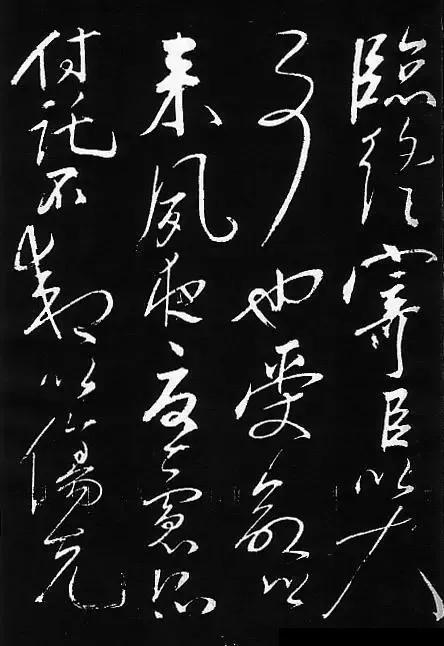 臨終寄臣以大
事也受命以
来夙夜憂慮恐
付託不効以傷先